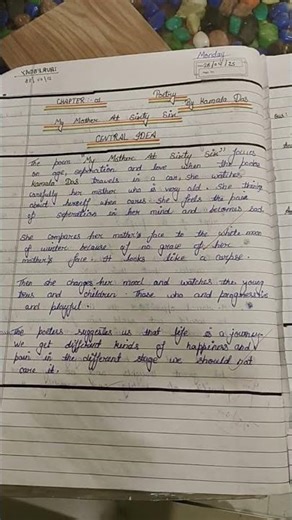 Monday
CHAPTER :- 01
Poetry
By Kamala Das
My Mother At Sixty Six
CENTRAL IDEA
The poem "My Mother At Sixty Six" focus
on age, seperation and love when the poetess
Kamala Das travels in a car, she watches
carefully her mother who is very old. She thinks
about herself when cares she feels the pain
of seperation in her mind and becomes sad.
She compares her mother's face to the white moon
of winter because of no grace of her
mother's face. It looks like a corpse.
Then she changes her mood and watches the young
trees and children. Those who and progressive
and playful.
The poetess suggestes us that life is a journey
we get different kinds of happiness and
pain in the different stage we should not
care it.